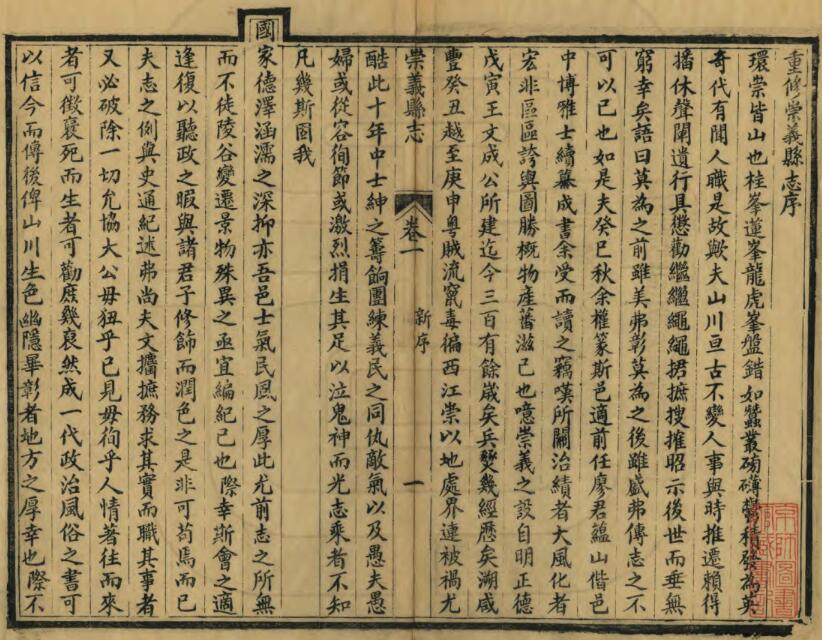 重修崇義縣志序
環崇皆山也桂峯蓮峯龍虎峯盤錯如蠶叢磅礴鬱積發為英
奇代有聞人職是故歟夫山川亘古不變人事與時推遷賴得
播休聲闡遺行具懲勸繼繼繩繩捃摭搜摧昭示後世而垂無
窮幸矣語曰莫為之前雖美弗彰莫為之後雖盛弗傳志之不
可以已也如是夫癸巳秋余權篆斯邑適前任廖君蘊山偕邑
中博雅士續纂成書余受而讀之竊嘆所關治績者大風化者
宏非區區誇輿圖勝概物產蕃滋已也噫崇義之設自明正德
戊寅王文成公所建迄今三百有餘歲矣兵燹幾經歷矣溯咸
豐癸丑越至庚申粵賊流竄毒徧西江崇以地處界連被禍尤
崇義縣志
卷一
新序
一
酷此十年中士紳之籌餉團練義民之同仇敵氣以及愚夫愚
婦或從容徇節或激烈捐生其足以泣鬼神而光志乘者不知
凡幾斯固我
國家德澤涵濡之深抑亦吾邑士氣民風之厚此尤前志之所無
而不徒陵谷變遷景物殊異之亟宜編紀已也際幸斯會之適
逢復以聽政之暇與諸君子修飾而潤色之是非可苟焉而已
夫志之例與史通紀述弗尚夫文擕摭務求其實而職其事者
又必破除一切允協大公毋狃乎已見毋徇乎人情著往而來
者可徵褒死而生者可勸庶幾裒然成一代政治風俗之書可
以信今而傳後俾山川生色幽隱畢彰者地方之厚幸也際不